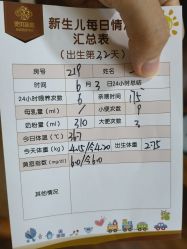 新生儿每日情
汇总表
(出生第32天)
房号 219 姓名
时间 6月3日24小时总结
24小时喂养次数 6 亲喂时间 175
母乳量(ml) / 小便次数 9
奶粉量(ml) 310 大便次数 3
今日体温(℃) 36.7
今天体重(kg) 4.15/今4.20 出生体重 2.75
黄疸指数(mg/dl) 6.0/6.0
其他情况